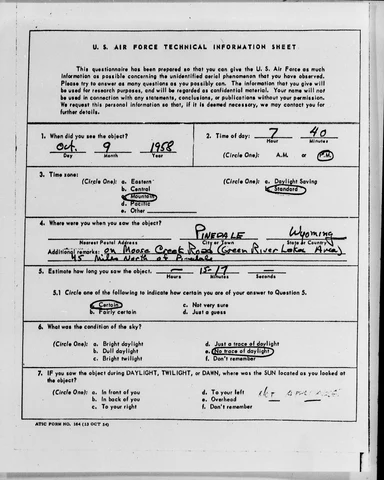 U. S. AIR FORCE TECHNICAL INFORMATION SHEET
This questionnaire has been prepared so that you can give the U. S. Air Force as much
information as possible concerning the unidentified aerial phenomenon that you have observed.
Please try to answer as many questions as you possibly can. The information that you give will
be used for research purposes, and will be regarded as confidential material. Your name will not
be used in connection with any statements, conclusions, or publications without your permission.
We request this personal information so that, if it is deemed necessary, we may contact you for
further details.
1. When did you see the object?
Oct. 9 1958
Day Month Year
2. Time of day: 7 40
Hour Minutes
(Circle One): A.M. or P.M.
3. Time zone:
(Circle One): a. Eastern
b. Central
c. Mountain
d. Pacific
e. Other
(Circle One): a. Daylight Saving
b. Standard
4. Where were you when you saw the object?
PINEDALE Wyoming
Nearest Postal Address City or Town State or Country
Additional remarks: on Moose Creek Road (Green River Lake Area)
45 Miles North of Pinedale
5. Estimate how long you saw the object. — 15-17 —
Hours Minutes Seconds
5.1 Circle one of the following to indicate how certain you are of your answer to Question 5.
a. Certain
b. Fairly certain
c. Not very sure
d. Just a guess
6. What was the condition of the sky?
(Circle One): a. Bright daylight
b. Dull daylight
c. Bright twilight
d. Just a trace of daylight
e. No trace of daylight
f. Don't remember
7. IF you saw the object during DAYLIGHT, TWILIGHT, or DAWN, where was the SUN located as you looked at
the object?
(Circle One): a. In front of you
b. In back of you
c. To your right
d. To your left
e. Overhead
f. Don't remember
ATIC FORM NO. 164 (13 OCT 54)